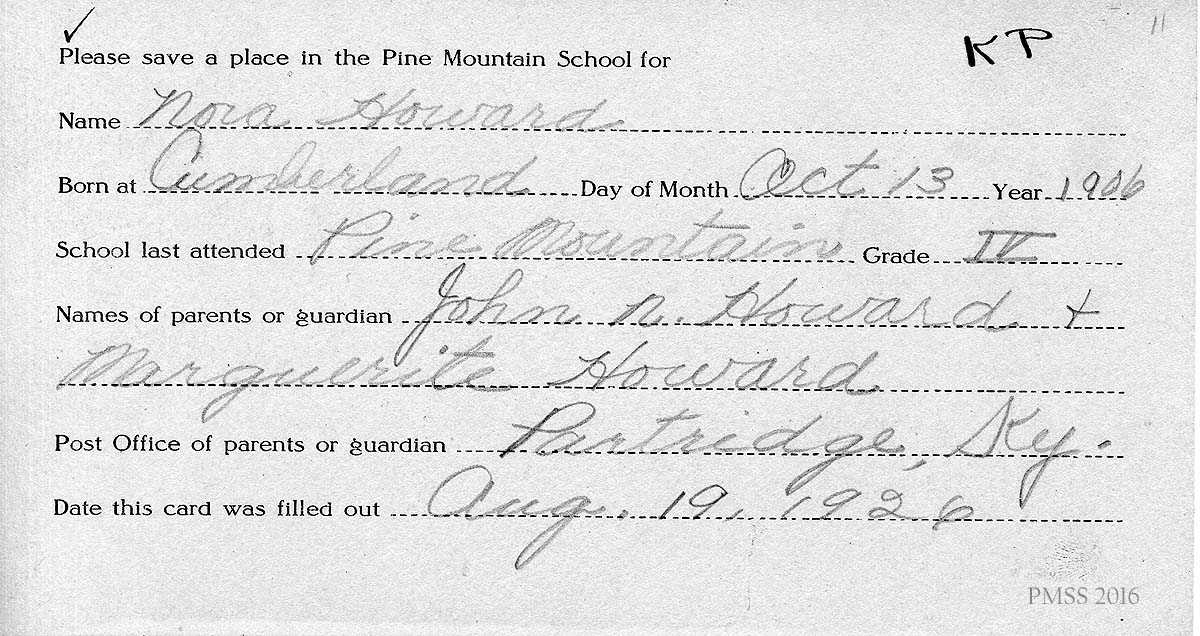 ✓
KP
11
Please save a place in the Pine Mountain School for
Name Nora Howard
Born at Cumberland Day of Month Oct 13 Year 1906
School last attended Pine Mountain Grade IV
Names of parents or guardian John N. Howard +
Marguerite Howard
Post Office of parents or guardian Partridge, Ky.
Date this card was filled out Aug. 19, 1926
PMSS 2016